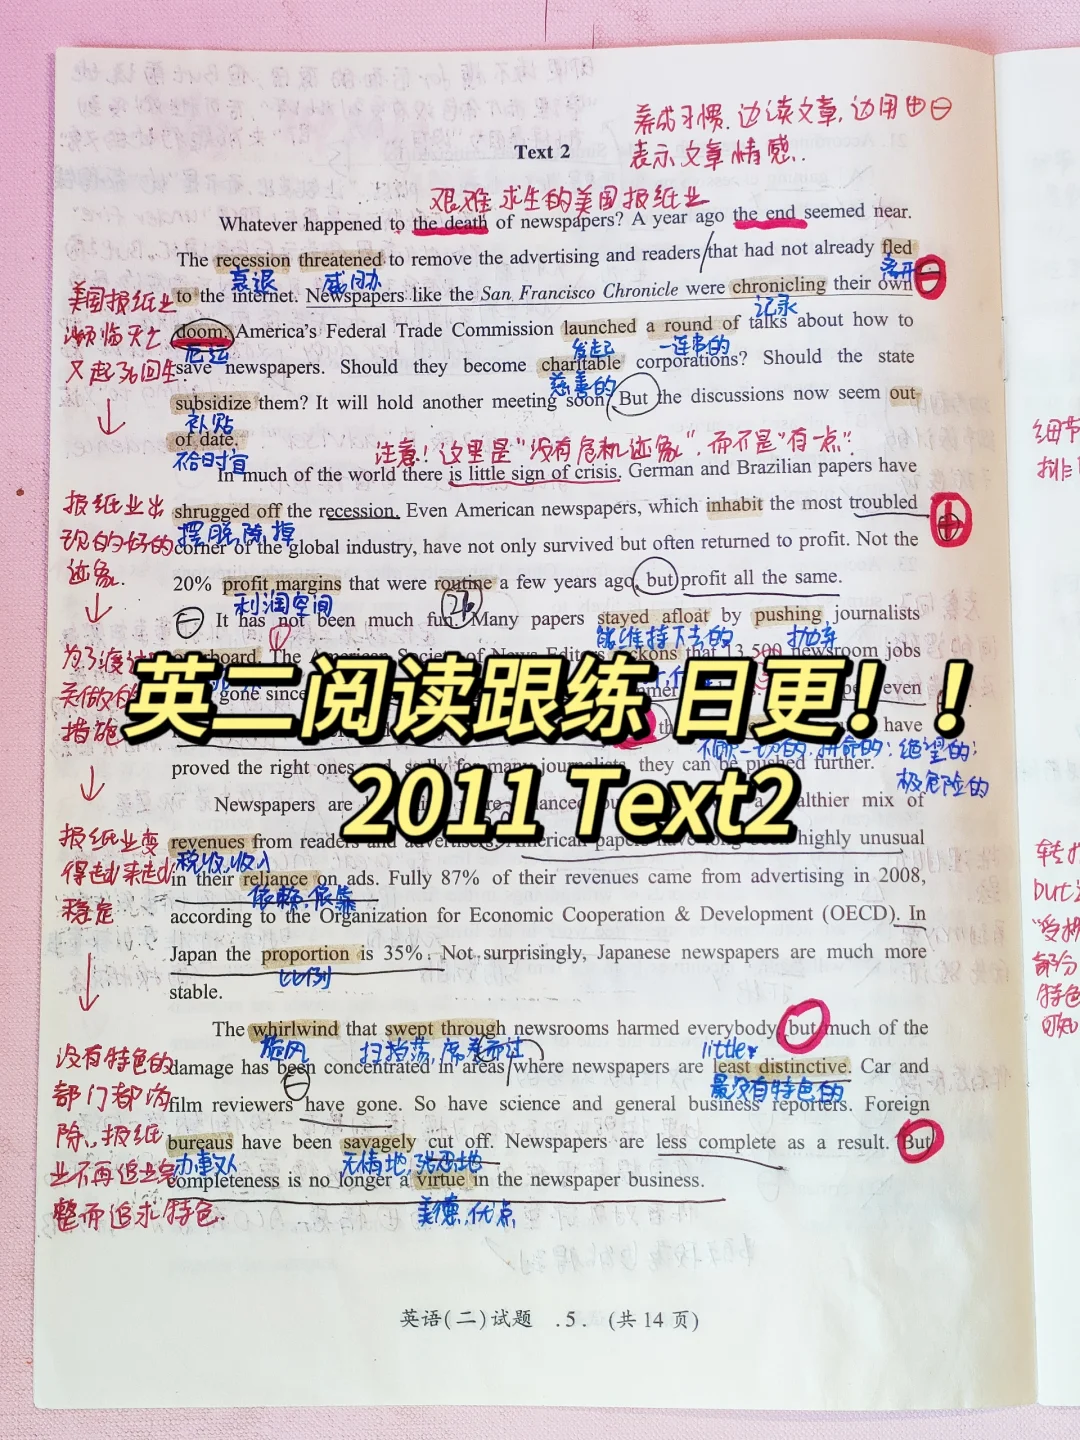 养成习惯.边读文章,边用⊕⊖
表示文章情感.
Text 2
艰难求生的美国报纸业
Whatever happened to the death of newspapers? A year ago the end seemed near.
The recession threatened to remove the advertising and readers that had not already fled
衰退 威胁 离开
to the internet. Newspapers like the San Francisco Chronicle were chronicling their own
记录
美国报纸业
濒临灭亡
又起死回生.
doom. America's Federal Trade Commission launched a round of talks about how to
厄运 发起 一连串的
save newspapers. Should they become charitable corporations? Should the state
慈善的
subsidize them? It will hold another meeting soon. But the discussions now seem out
补贴
of date.
不合时宜
注意!这里是"没有危机迹象",而不是"有一点".
In much of the world there is little sign of crisis. German and Brazilian papers have
报纸业出
现的好的
迹象.
shrugged off the recession. Even American newspapers, which inhabit the most troubled
摆脱,除掉
corner of the global industry, have not only survived but often returned to profit. Not the
20% profit margins that were routine a few years ago, but profit all the same.
利润空间
It has not been much fun. Many papers stayed afloat by pushing journalists
能维持下去的 抛弃
为了渡过
措施
The American Society of News Editors reckons that 13,500 newsroom jobs
gone since
even
have
不顾一切的;拼命的;绝望的;
极危险的
proved the right ones and, sadly for many journalists, they can be pushed further.
英二阅读跟练 日更!!
2011 Text2
Newspapers are
a healthier mix of
报纸业变
得越来越
稳定
revenues from readers and advertisers. American papers have long been highly unusual
税收,收入
in their reliance on ads. Fully 87% of their revenues came from advertising in 2008,
依赖,依靠
according to the Organization for Economic Cooperation & Development (OECD). In
Japan the proportion is 35%. Not surprisingly, Japanese newspapers are much more
比例
stable.
The whirlwind that swept through newsrooms harmed everybody, but much of the
旋风 little
没有特色的
部门都消
除,报纸
业不再追业完
整而追求特色.
damage has been concentrated in areas where newspapers are least distinctive. Car and
最没有特色的
film reviewers have gone. So have science and general business reporters. Foreign
bureaus have been savagely cut off. Newspapers are less complete as a result. But
无情地,残忍地
completeness is no longer a virtue in the newspaper business.
美德,优点
英语(二)试题 .5. (共14页)
细节